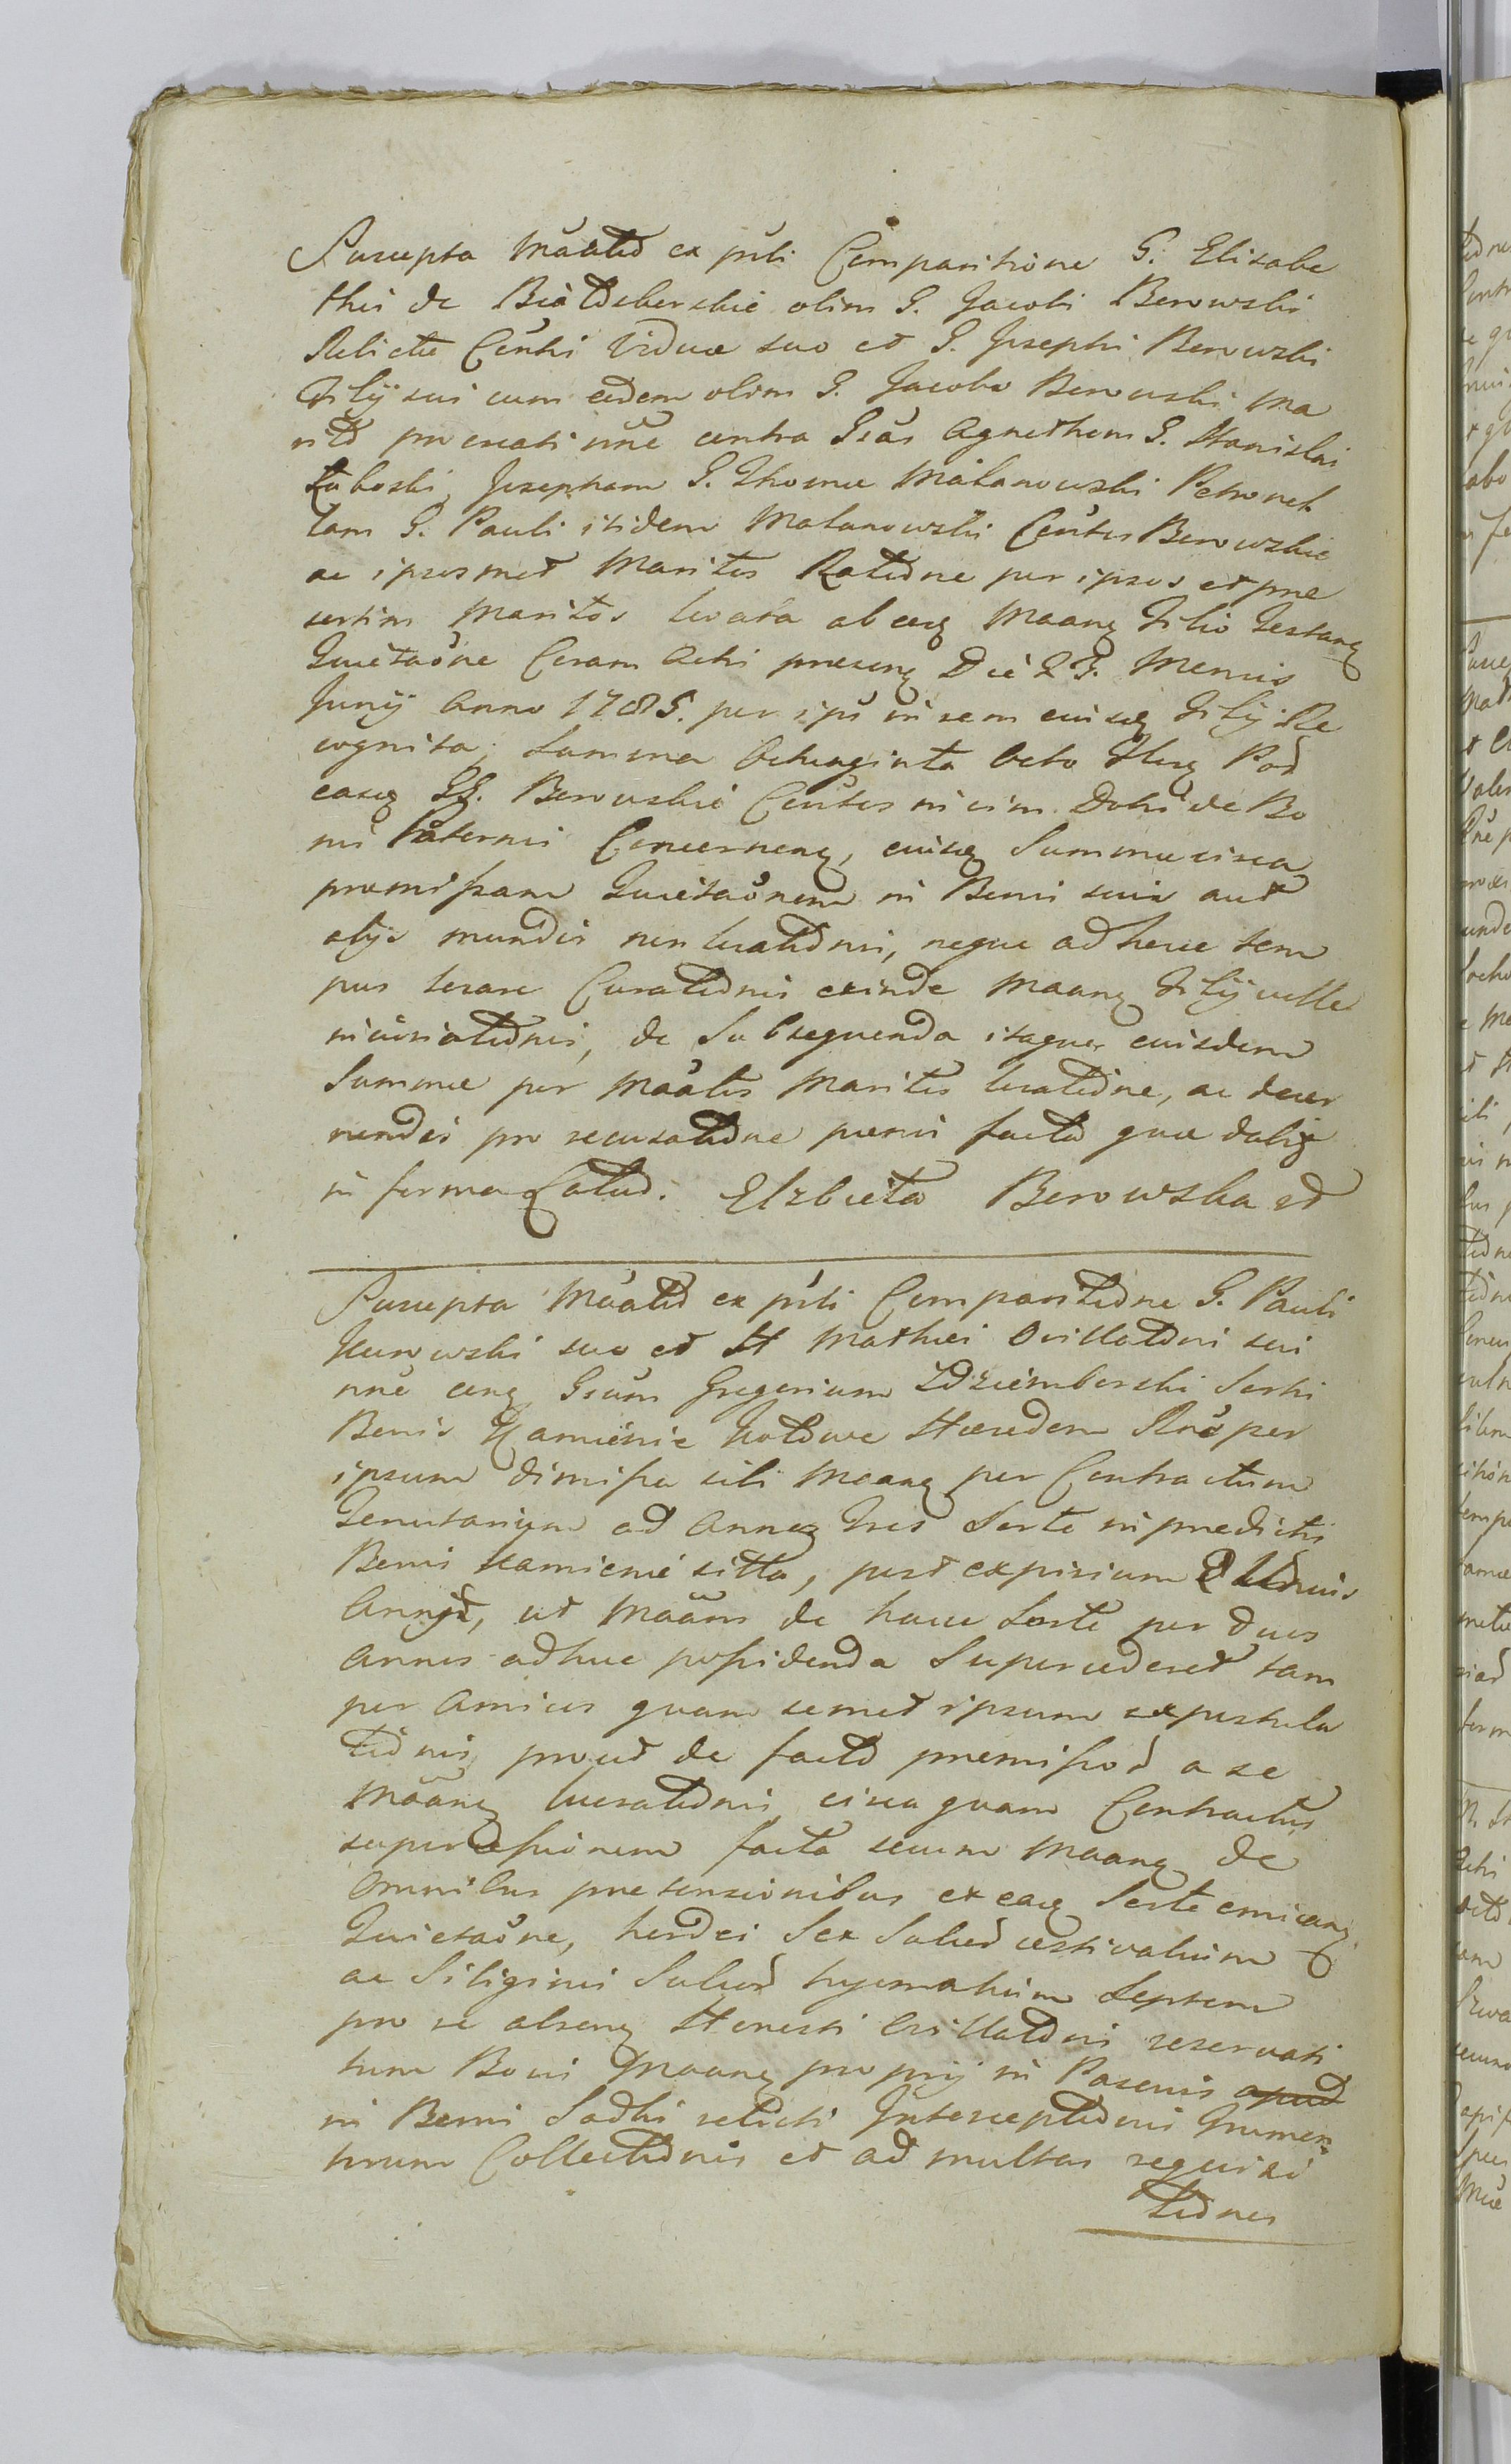 Suscepta Māatio ex pñti Comparitione G. Elisabe
this de olim G. Jacobi Borowski
Relictæ Coñthi Viduæ suo et G. Josephi Borowski
Filij sui cum eodem olim G. Jacobo Borowski Ma
rito procreati nñe contra Gsas Agnethem G. Stanislai
Łaboski, Josepham G. Thomæ Małanowski Petronel
lam G. Pauli itidem Małanowski Coñtes Borowskie
ac ipsosmet Maritos Ratione per ipsos et præ
sertim Maritos levata ab eoq Maanq Filio Gestanq
Quietaõne Coram Actis præsenq Die 27. Mensis
Junij Anno 1785. per ipsũ in rem eoiusq Filij Re
cognita, Summa Octuaginta Octo Flnq Pol
easq GG. Borowskie Coñtes in vim Dotis de Bo
nis Paternis Concernenq, eoiusq Summæ circa
præmissam Quietaõnem in Bonis suis aut
alijs mundis non locationis, neque ad hocce tem
pus levare Curationis exinde Maanq Filij velle
injuriationis, de Subsequenda itaque eoiusdem
Summæ per Māatos Maritos locatione, ac decer
nendis pro recusatione pœnis facta quæ
in forma Latius. Elzbieta Borowska
Suscepta Māatio ex pñti Comparitione G. Pauli
Kurowski suo et H Mathiei Ovillationi sui
nñe cenq Gsum Gregorium Zdziemborski Sortis
Bonis Kamienie Hæredem Rñe per
ipsum dimissa sibi Maanq per Contractum
Tenutarium ad Annos Tres Sorte in prædictis
Bonis Kamienie sitta, post expirium
Annij, ut Maãns de hacce Sorte per duos
annos adhuc possidenda Supercederet tam
per Amicos quam semet ipsum expostula
tionis, prout de facto præmissor a se
Mãanq lucrationis, circa quam Contractus
supercessionem facta secum Maanq de
Omnibus prætensionibus ex eaq Sorte emicanq
Quietaõne, hordei Sex Sulcor æstivalium
ac Siliginis Sulcor hyemalium Septem
pro se absenq Honesti Ovillationi reservati
tum Bovis Maanq proprij in Pascuis apud
in Bonis Sadki relicti Interceptionis Grumen=
torum Collectionis et ad multas requisi
tiones